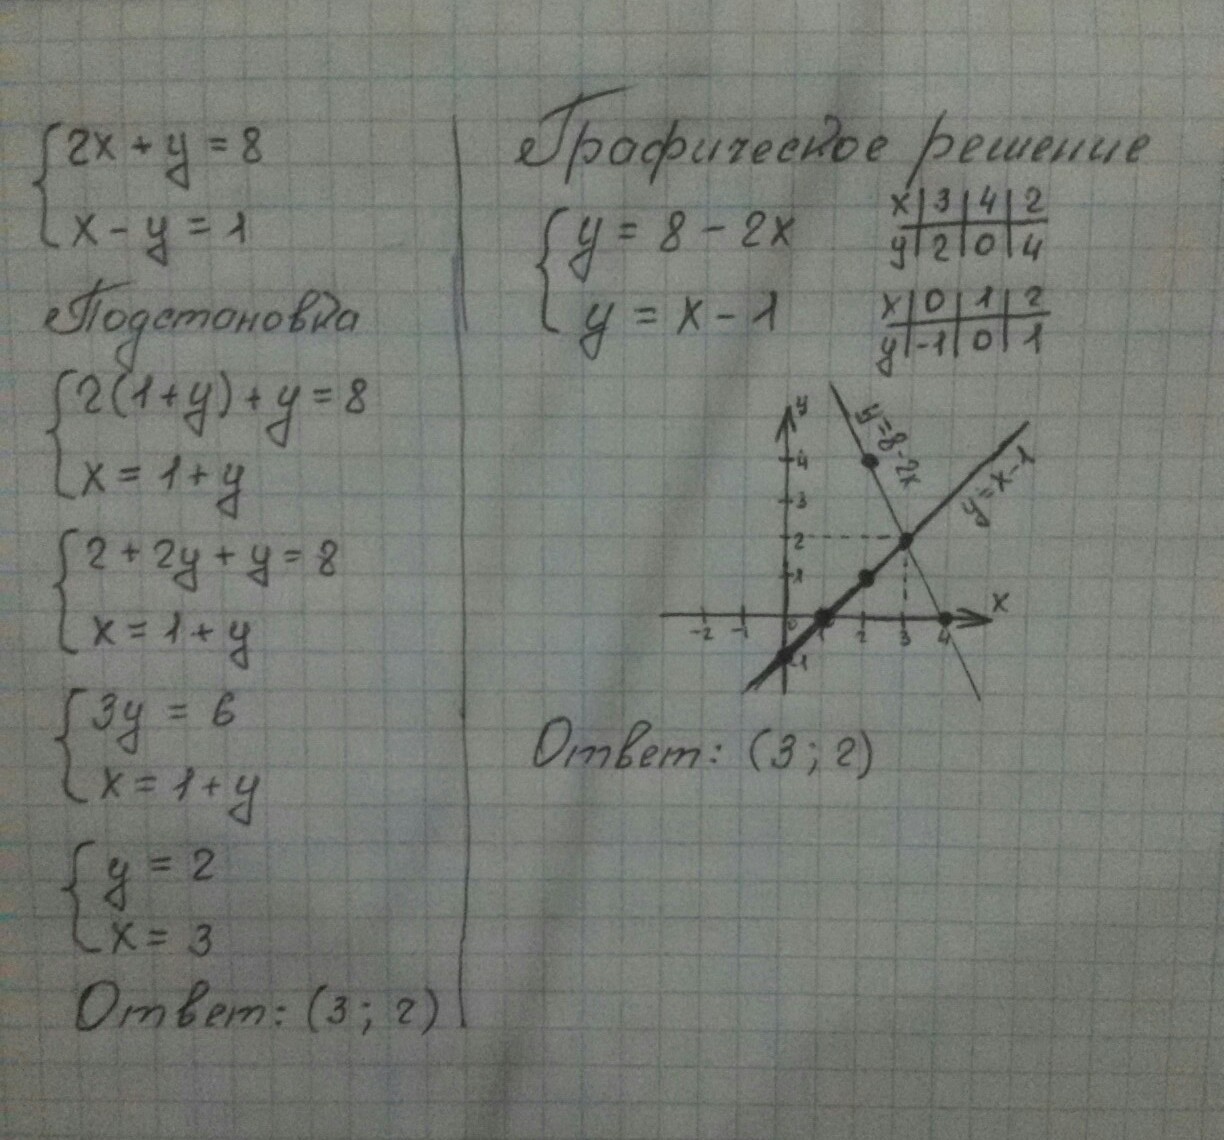 2x + y = 8
x - y = 1
Подстановка
2(1+y) + y = 8
x = 1 + y
2 + 2y + y = 8
x = 1 + y
3y = 6
x = 1 + y
y = 2
x = 3
Ответ: (3; 2)
Графическое решение
y = 8 - 2x
y = x - 1
x | 3 | 4 | 2
y | 2 | 0 | 4
x | 0 | 1 | 2
y | -1 | 0 | 1
y
y=8-2x
y=x-1
4
3
2
1
x
-2 -1 0 1 2 3 4
-1
Ответ: (3; 2)